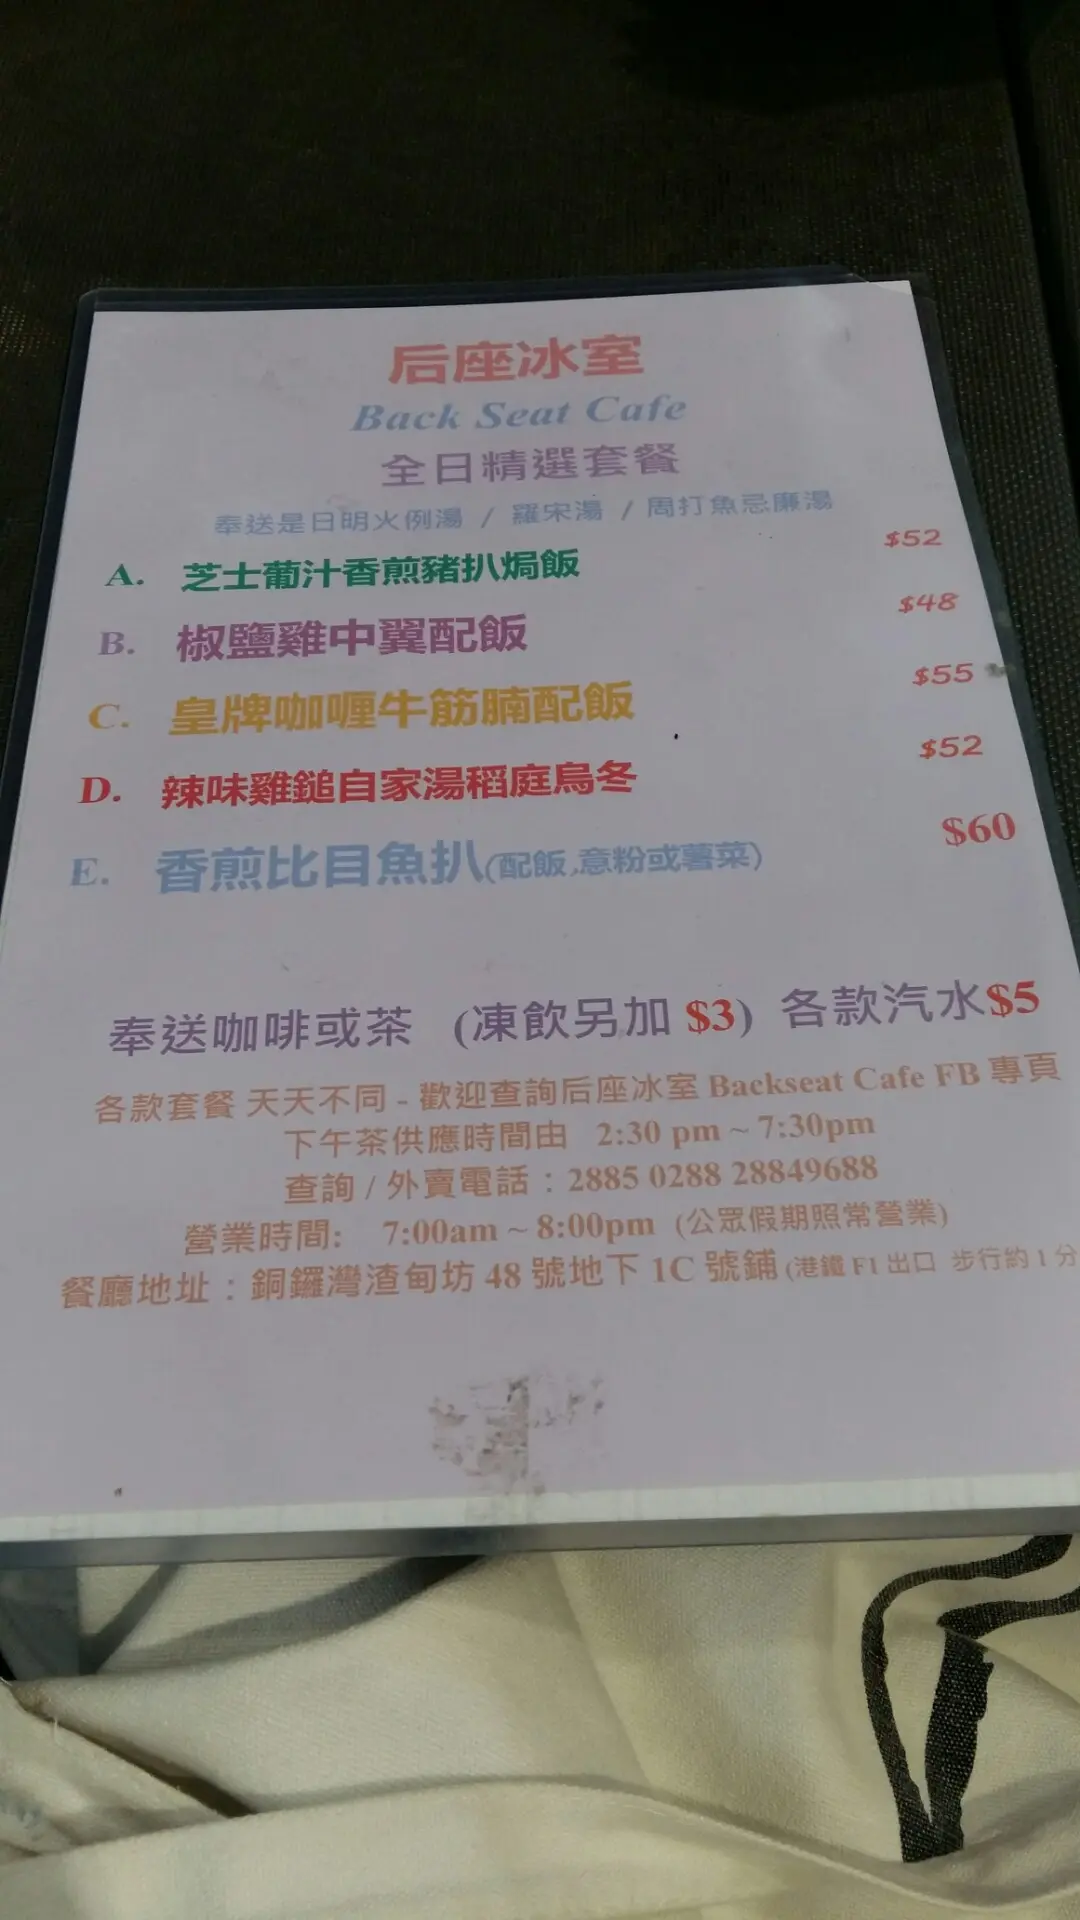 后座冰室
Back Seat Cafe
全日精選套餐
奉送是日明火例湯 / 羅宋湯 / 周打魚忌廉湯
A. 芝士葡汁香煎豬扒焗飯 $52
B. 椒鹽雞中翼配飯 $48
C. 皇牌咖喱牛筋腩配飯 $55
D. 辣味雞鎚自家湯稻庭烏冬 $52
E. 香煎比目魚扒(配飯,意粉或薯菜) $60
奉送咖啡或茶 (凍飲另加 $3) 各款汽水$5
各款套餐 天天不同 - 歡迎查詢后座冰室 Backseat Cafe FB 專頁
下午茶供應時間由 2:30 pm ~ 7:30pm
查詢 / 外賣電話：2885 0288 28849688
營業時間: 7:00am ~ 8:00pm (公眾假期照常營業)
餐廳地址：銅鑼灣渣甸坊 48 號地下 1C 號鋪 (港鐵 F1 出口 步行約 1 分